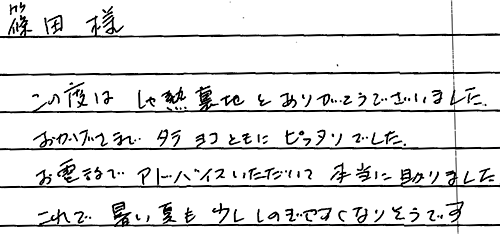 篠田様
この度は しゃ熱裏地を ありがとうございました.
おかげさまで タテ ヨコ ともに ピッタリでした.
お電話で アドバイスいただいて 本当に助かりました
これで 暑い夏も 少ししのぎやすくなりそうです